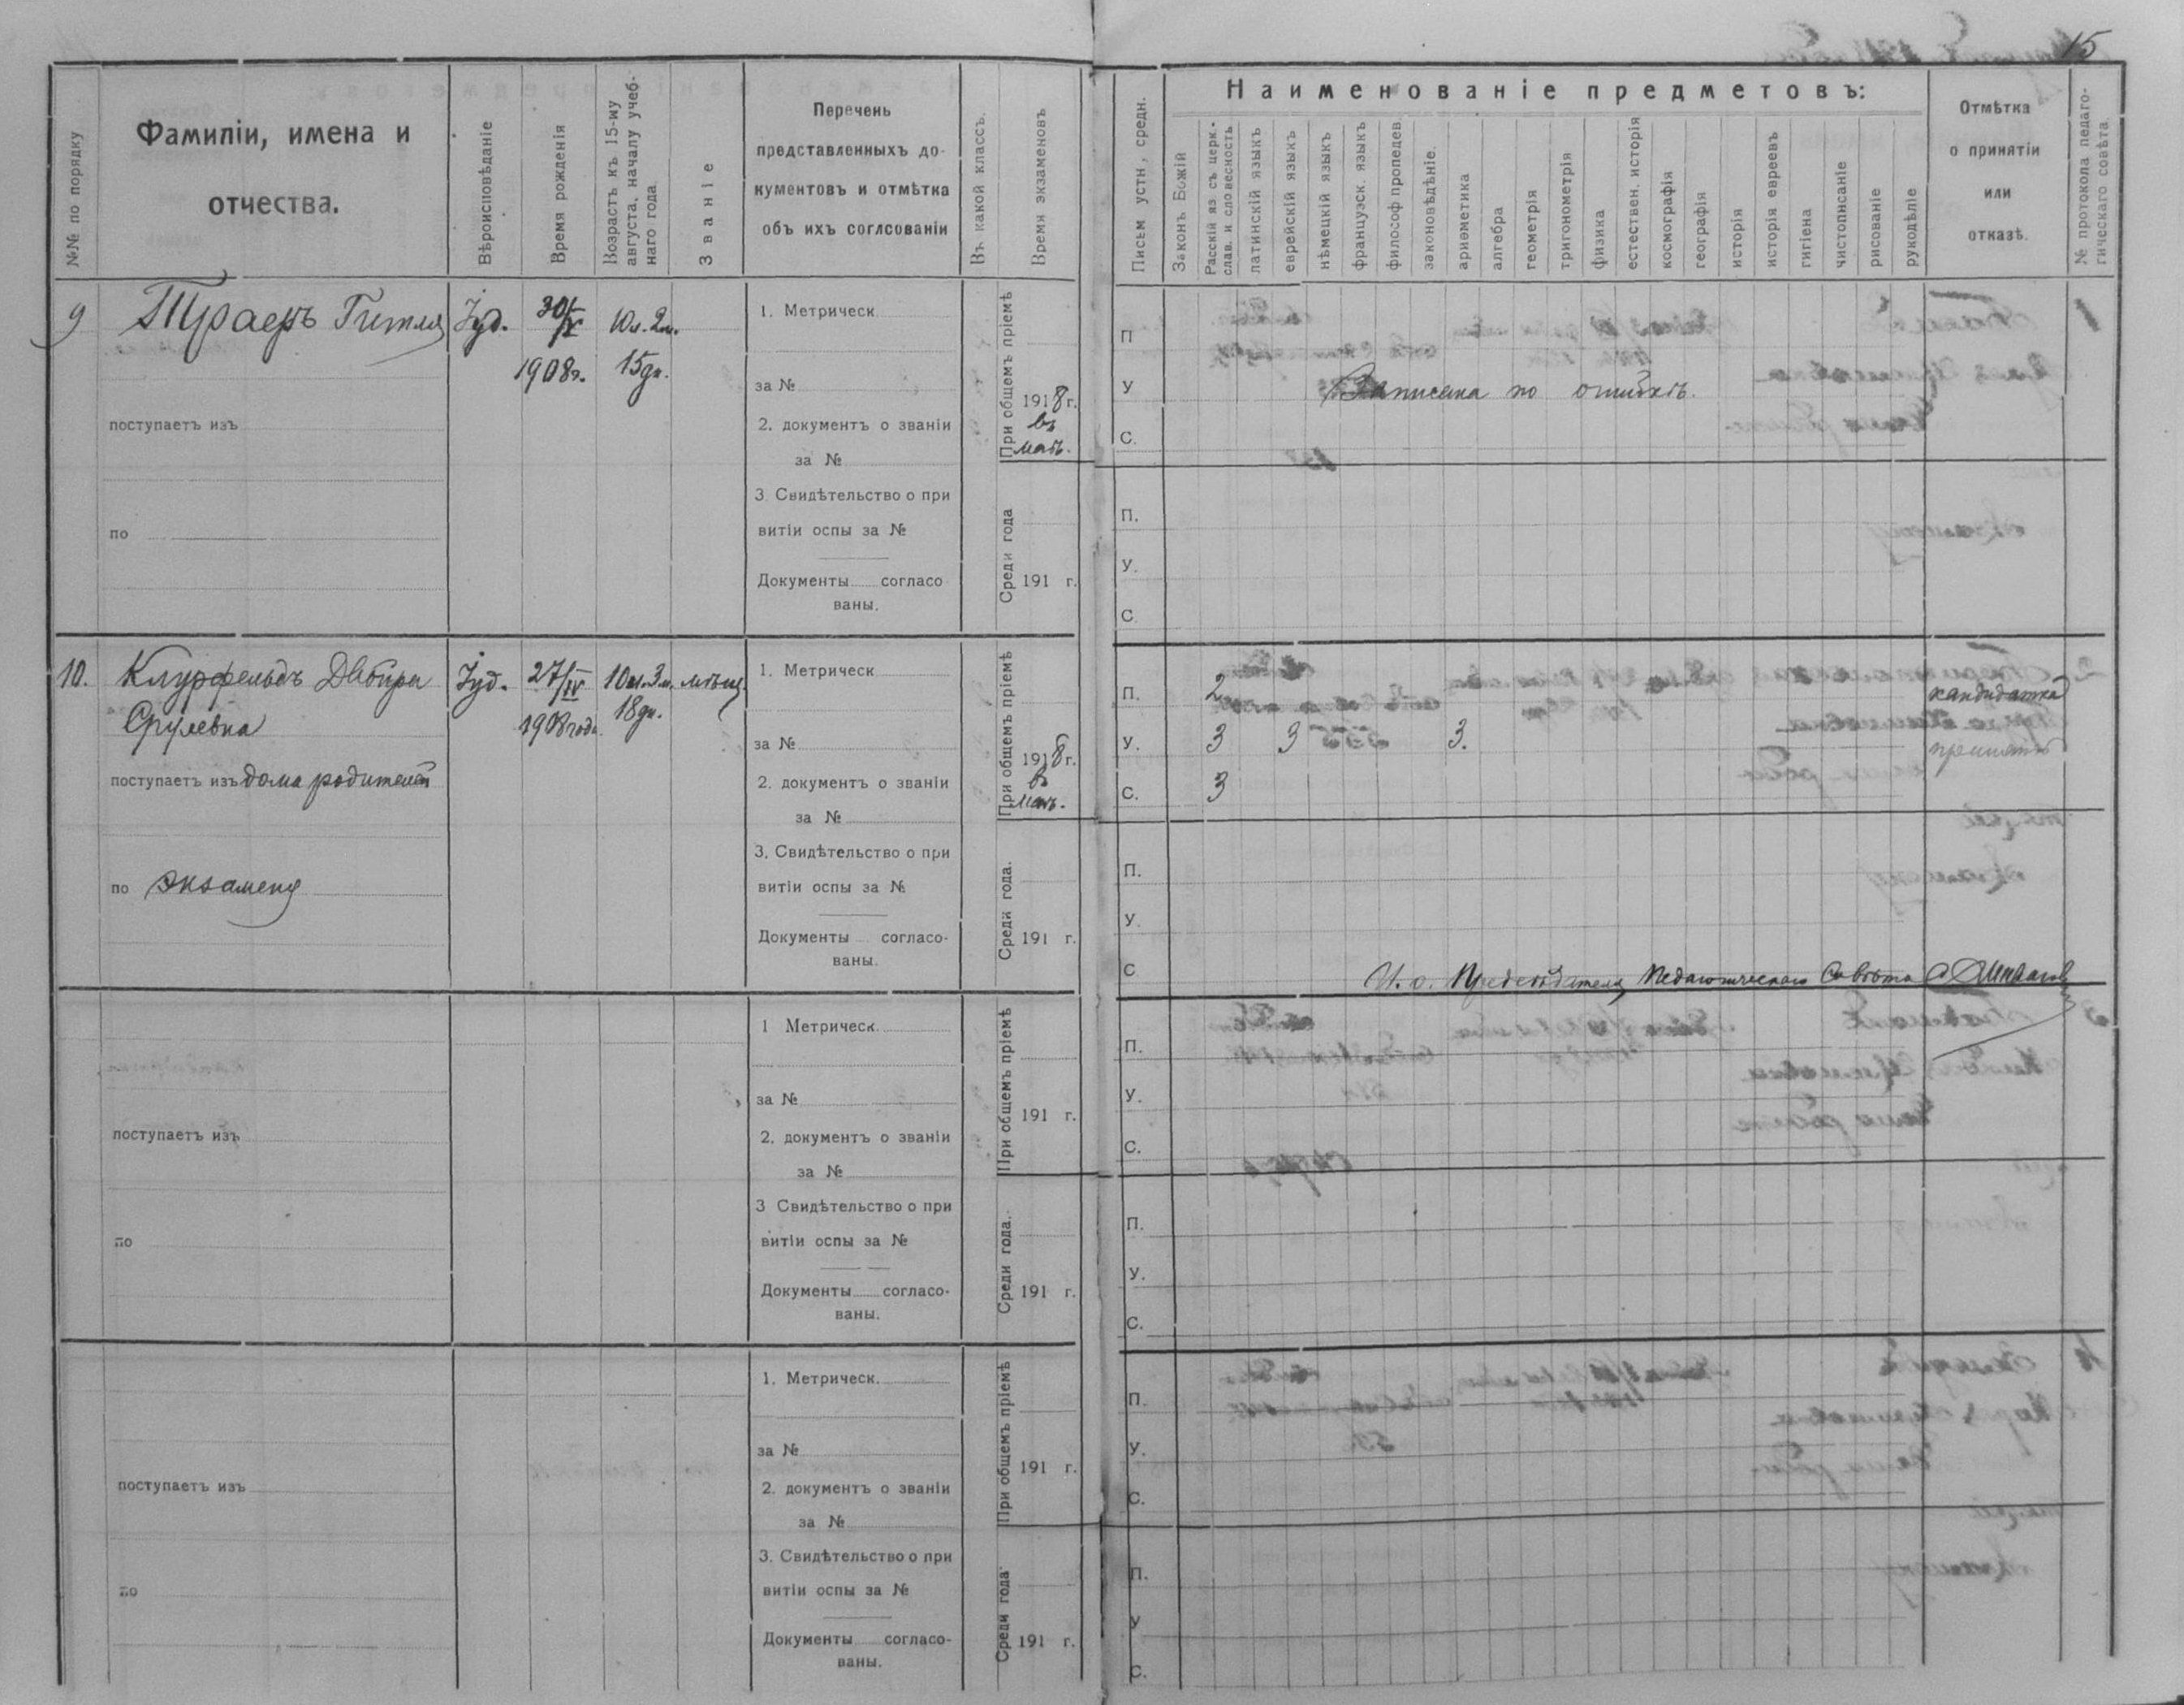 15
№№ по порядку
Фамиліи, имена и
отчества.
Вѣроисповѣданіе
Время рожденія
Возрастъ къ 15-му
августа, началу учеб-
наго года
Званіе
Перечень
представленныхъ до-
кументовъ и отмѣтка
объ ихъ соглсованіи
Въ какой классъ.
Время экзаменовъ
Письм устн, средн.
Наименованіе предметовъ:
Законъ Божій
Расскій яз съ церк.-
слав. и словесность
латинскій языкъ
еврейскій языкъ
нѣмецкій языкъ
французск. языкъ
философ пропедев
законовѣдѣніе.
ариѳметика
алгебра
геометрія
тригонометрія
физика
естествен. исторія
космографія
географія
исторія
исторія евреевъ
гигіена
чистописаніе
рисованіе
рукодѣліе
Отмѣтка
о принятіи
или
отказѣ.
№ протокола педаго-
гическаго совѣта
9 Траеръ Гитля Іуд. 30/V 10л. 2м.
1908г. 15дн.
поступаетъ изъ
по
1. Метрическ
за №
2. документъ о званіи
за №
3. Свидѣтельство о при
витіи оспы за №
Документы согласо
ваны.
При общемъ пріемѣ
1918 г.
въ
маѣ.
Среди года
191 г.
П
У Записана по ошибкѣ.
С.
П.
У.
С.
10. Клурфельдъ Двойра Іуд. 27/IV 10л. 3м. мѣщ.
Срулевна 1908 года 18дн.
поступаетъ изъ дома родителей
по экзамену
1. Метрическ
за №
2. документъ о званіи
за №
3. Свидѣтельство о при
витіи оспы за №
Документы согласо-
ваны.
При общемъ пріемѣ
1918 г.
въ
маѣ.
Среди года.
191 г.
П. 2 кандидатка
У. 3 3 3. принята
С. 3
П.
У.
С И. о. Предсѣдателя Педагогическаго Совѣта
поступаетъ изъ
по
1 Метрическ.
за №
2. документъ о званіи
за №
3 Свидѣтельство о при
витіи оспы за №
Документы согласо-
ваны.
При общемъ пріемѣ
191 г.
Среди года.
191 г.
П.
У.
С.
П.
У.
С.
поступаетъ изъ
по
1. Метрическ.
за №
2. документъ о званіи
за №
3. Свидѣтельство о при
витіи оспы за №
Документы согласо-
ваны.
При общемъ пріемѣ
191 г.
Среди года
191 г.
П.
У.
С.
П.
У
С.